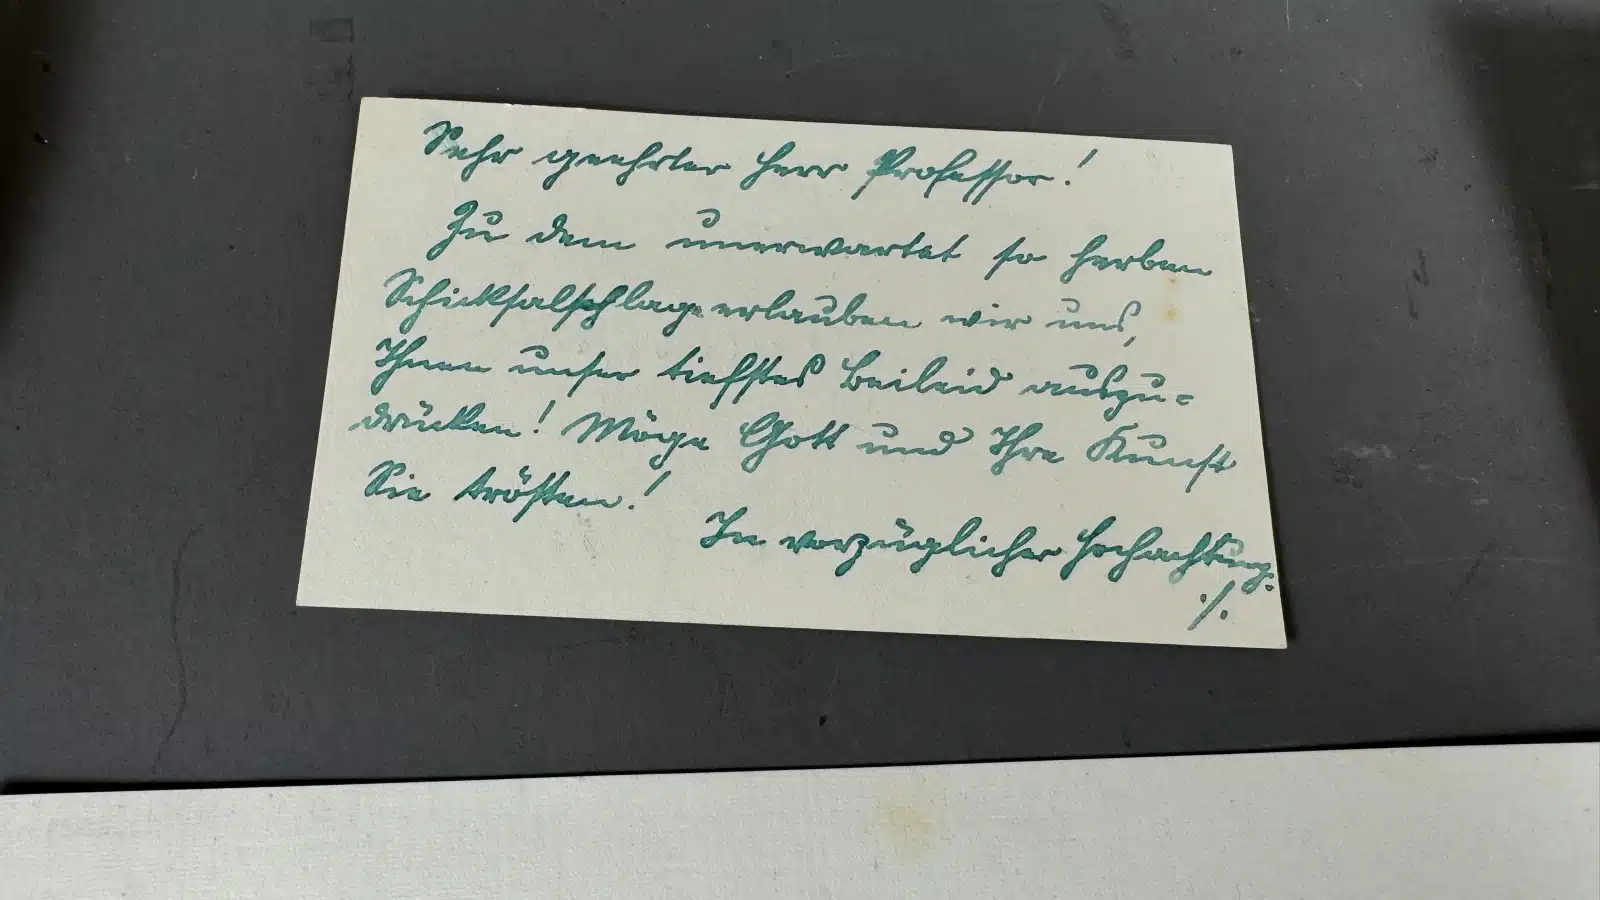 Sehr geehrter Herr Professor!
Zu dem unerwartet so herben
Schicksalschlage erlauben wir uns,
Ihnen unser tiefstes Beileid auszu=
drücken! Möge Gott und Ihre Kunst
Sie trösten!
In vorzüglicher Hochachtung:
./.